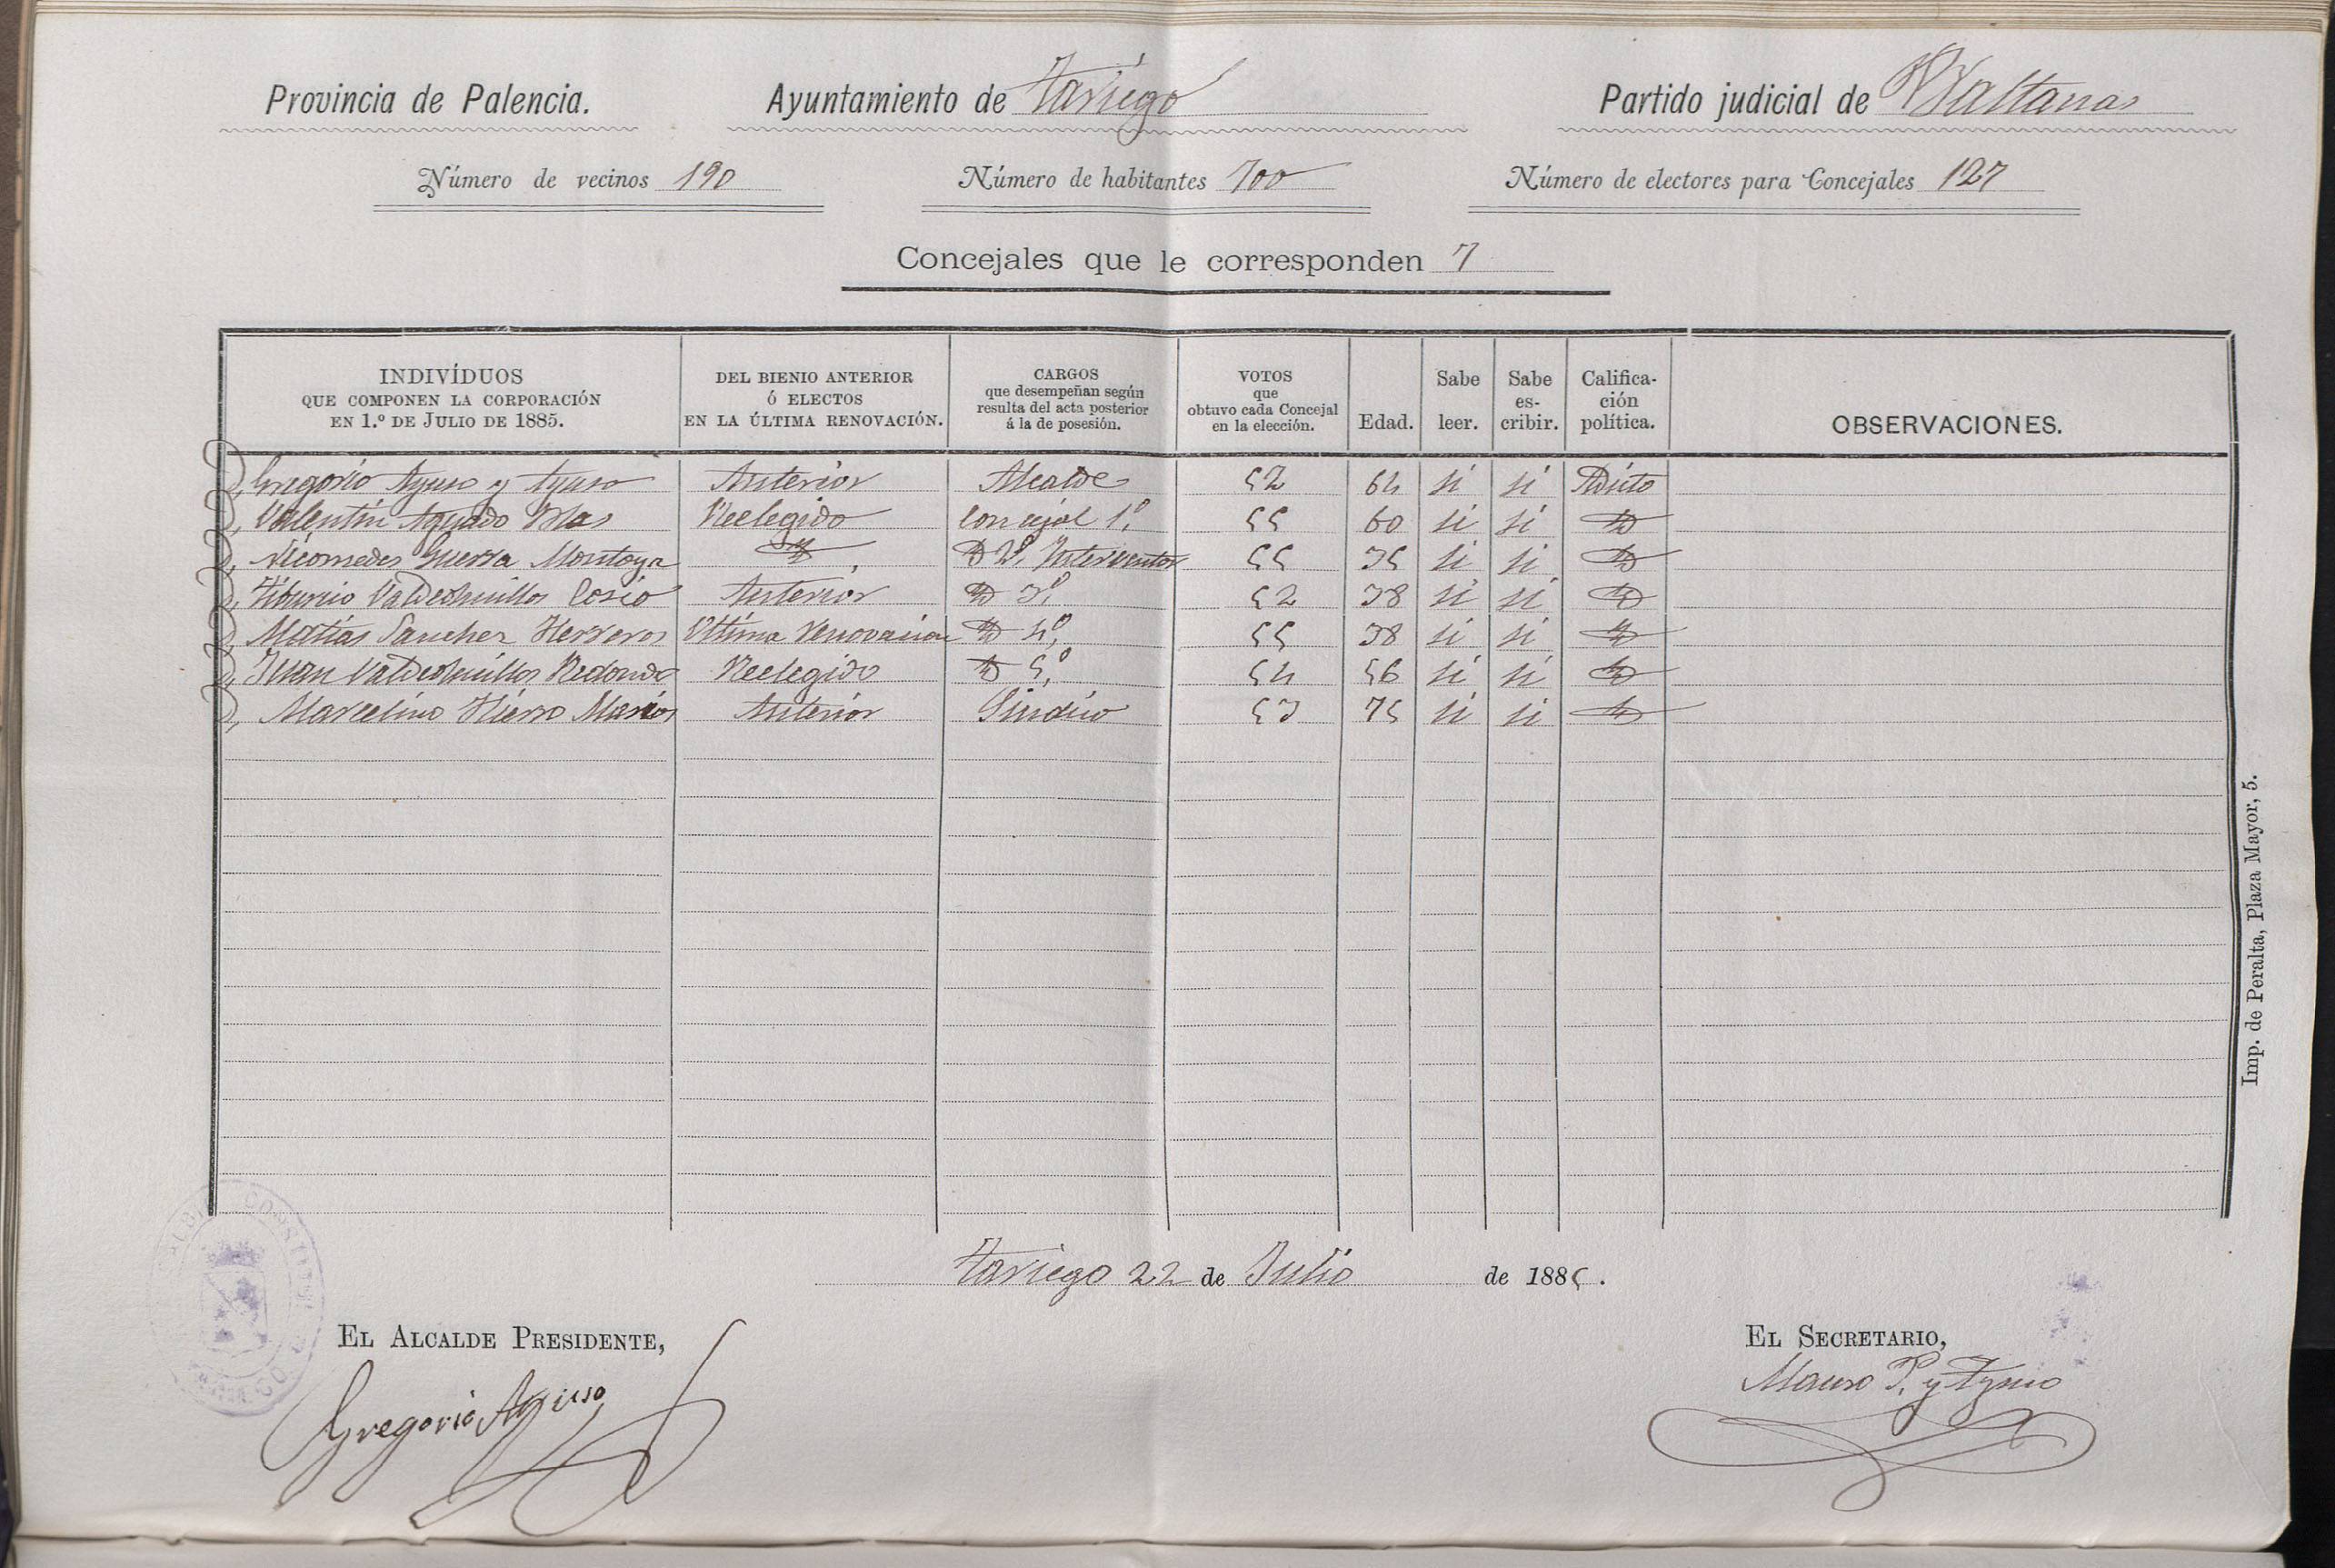 Provincia de Palencia. Ayuntamiento de Tariego Partido judicial de Baltanas
Número de vecinos 190 Número de habitantes 700 Número de electores para Concejales 127
Concejales que le corresponden 7
INDIVÍDUOS QUE COMPONEN LA CORPORACIÓN EN 1.º DE JULIO DE 1885. DEL BIENIO ANTERIOR Ó ELECTOS EN LA ÚLTIMA RENOVACIÓN. CARGOS que desempeñan según resulta del acta posterior á la de posesión. VOTOS que obtuvo cada Concejal en la elección. Edad. Sabe leer. Sabe es- cribir. Califica- ción política. OBSERVACIONES.
D. Gregorio Ayuso y Ayuso Anterior Alcalde 52 64 si si Adicto
D. Valentin Aguado Blas Reelegido Concejal 1.º 55 60 si si ID
D. Nicomedes Guerra Montoya ID. ID 2.º Interventor 55 35 si si ID
D. Tiburcio Valdeolmillos Cosio Anterior ID 3.º 52 38 si si ID
D. Matias Sanchez Herreros Ultima renovacion ID 4.º 55 38 si si ID
D. Juan Valdeolmillos Redondo Reelegido ID 5.º 54 56 si si ID
D. Marcelino Hierro Anterior Sindico 53 75 si si ID
Imp. de Peralta, Plaza Mayor, 5.
Tariego 22 de Julio de 1885.
EL ALCALDE PRESIDENTE, EL SECRETARIO,
Gregorio Ayuso Mauro P. y Ayuso